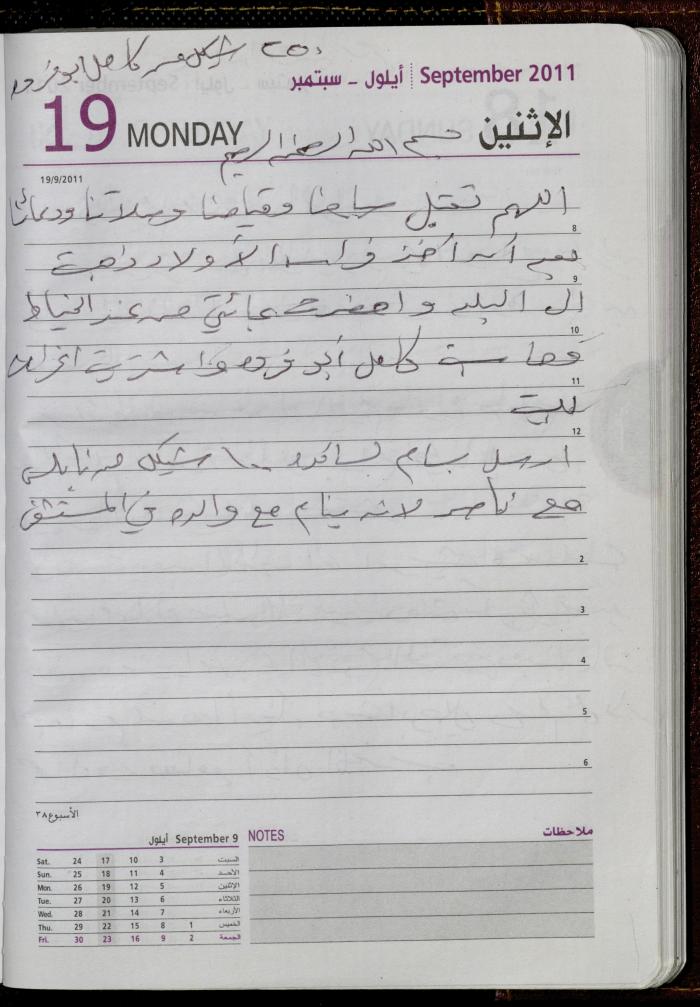 ٢٥٠ شيكل من كامل ابو فروه
أيلول ـ سبتمبر September 2011
19 MONDAY الإثنين
بسم الله الرحمن الرحيم
19/9/2011
اللهم تقبل صيامنا وقيامنا وصلاتنا ودعائنا
8
بعد أن أخذ فراس الأولاد ذهبت
9
الى البلد واحضرت عبائتي من عند الخياط
10
كامل أبو فروه واشتريت
11
للبيت
12
ارسل بسام ١٠٠ شيكل من نابلس
مع ناصر لانه ينام مع والده في المستشفى
2
3
4
5
6
الأسبوع ٣٨
September 9 أيلول
Sat. 24 17 10 3 السبت
Sun. 25 18 11 4 الأحد
Mon. 26 19 12 5 الإثنين
Tue. 27 20 13 6 الثلاثاء
Wed. 28 21 14 7 الأربعاء
Thu. 29 22 15 8 1 الخميس
Fri. 30 23 16 9 2 الجمعة
NOTES ملاحظات